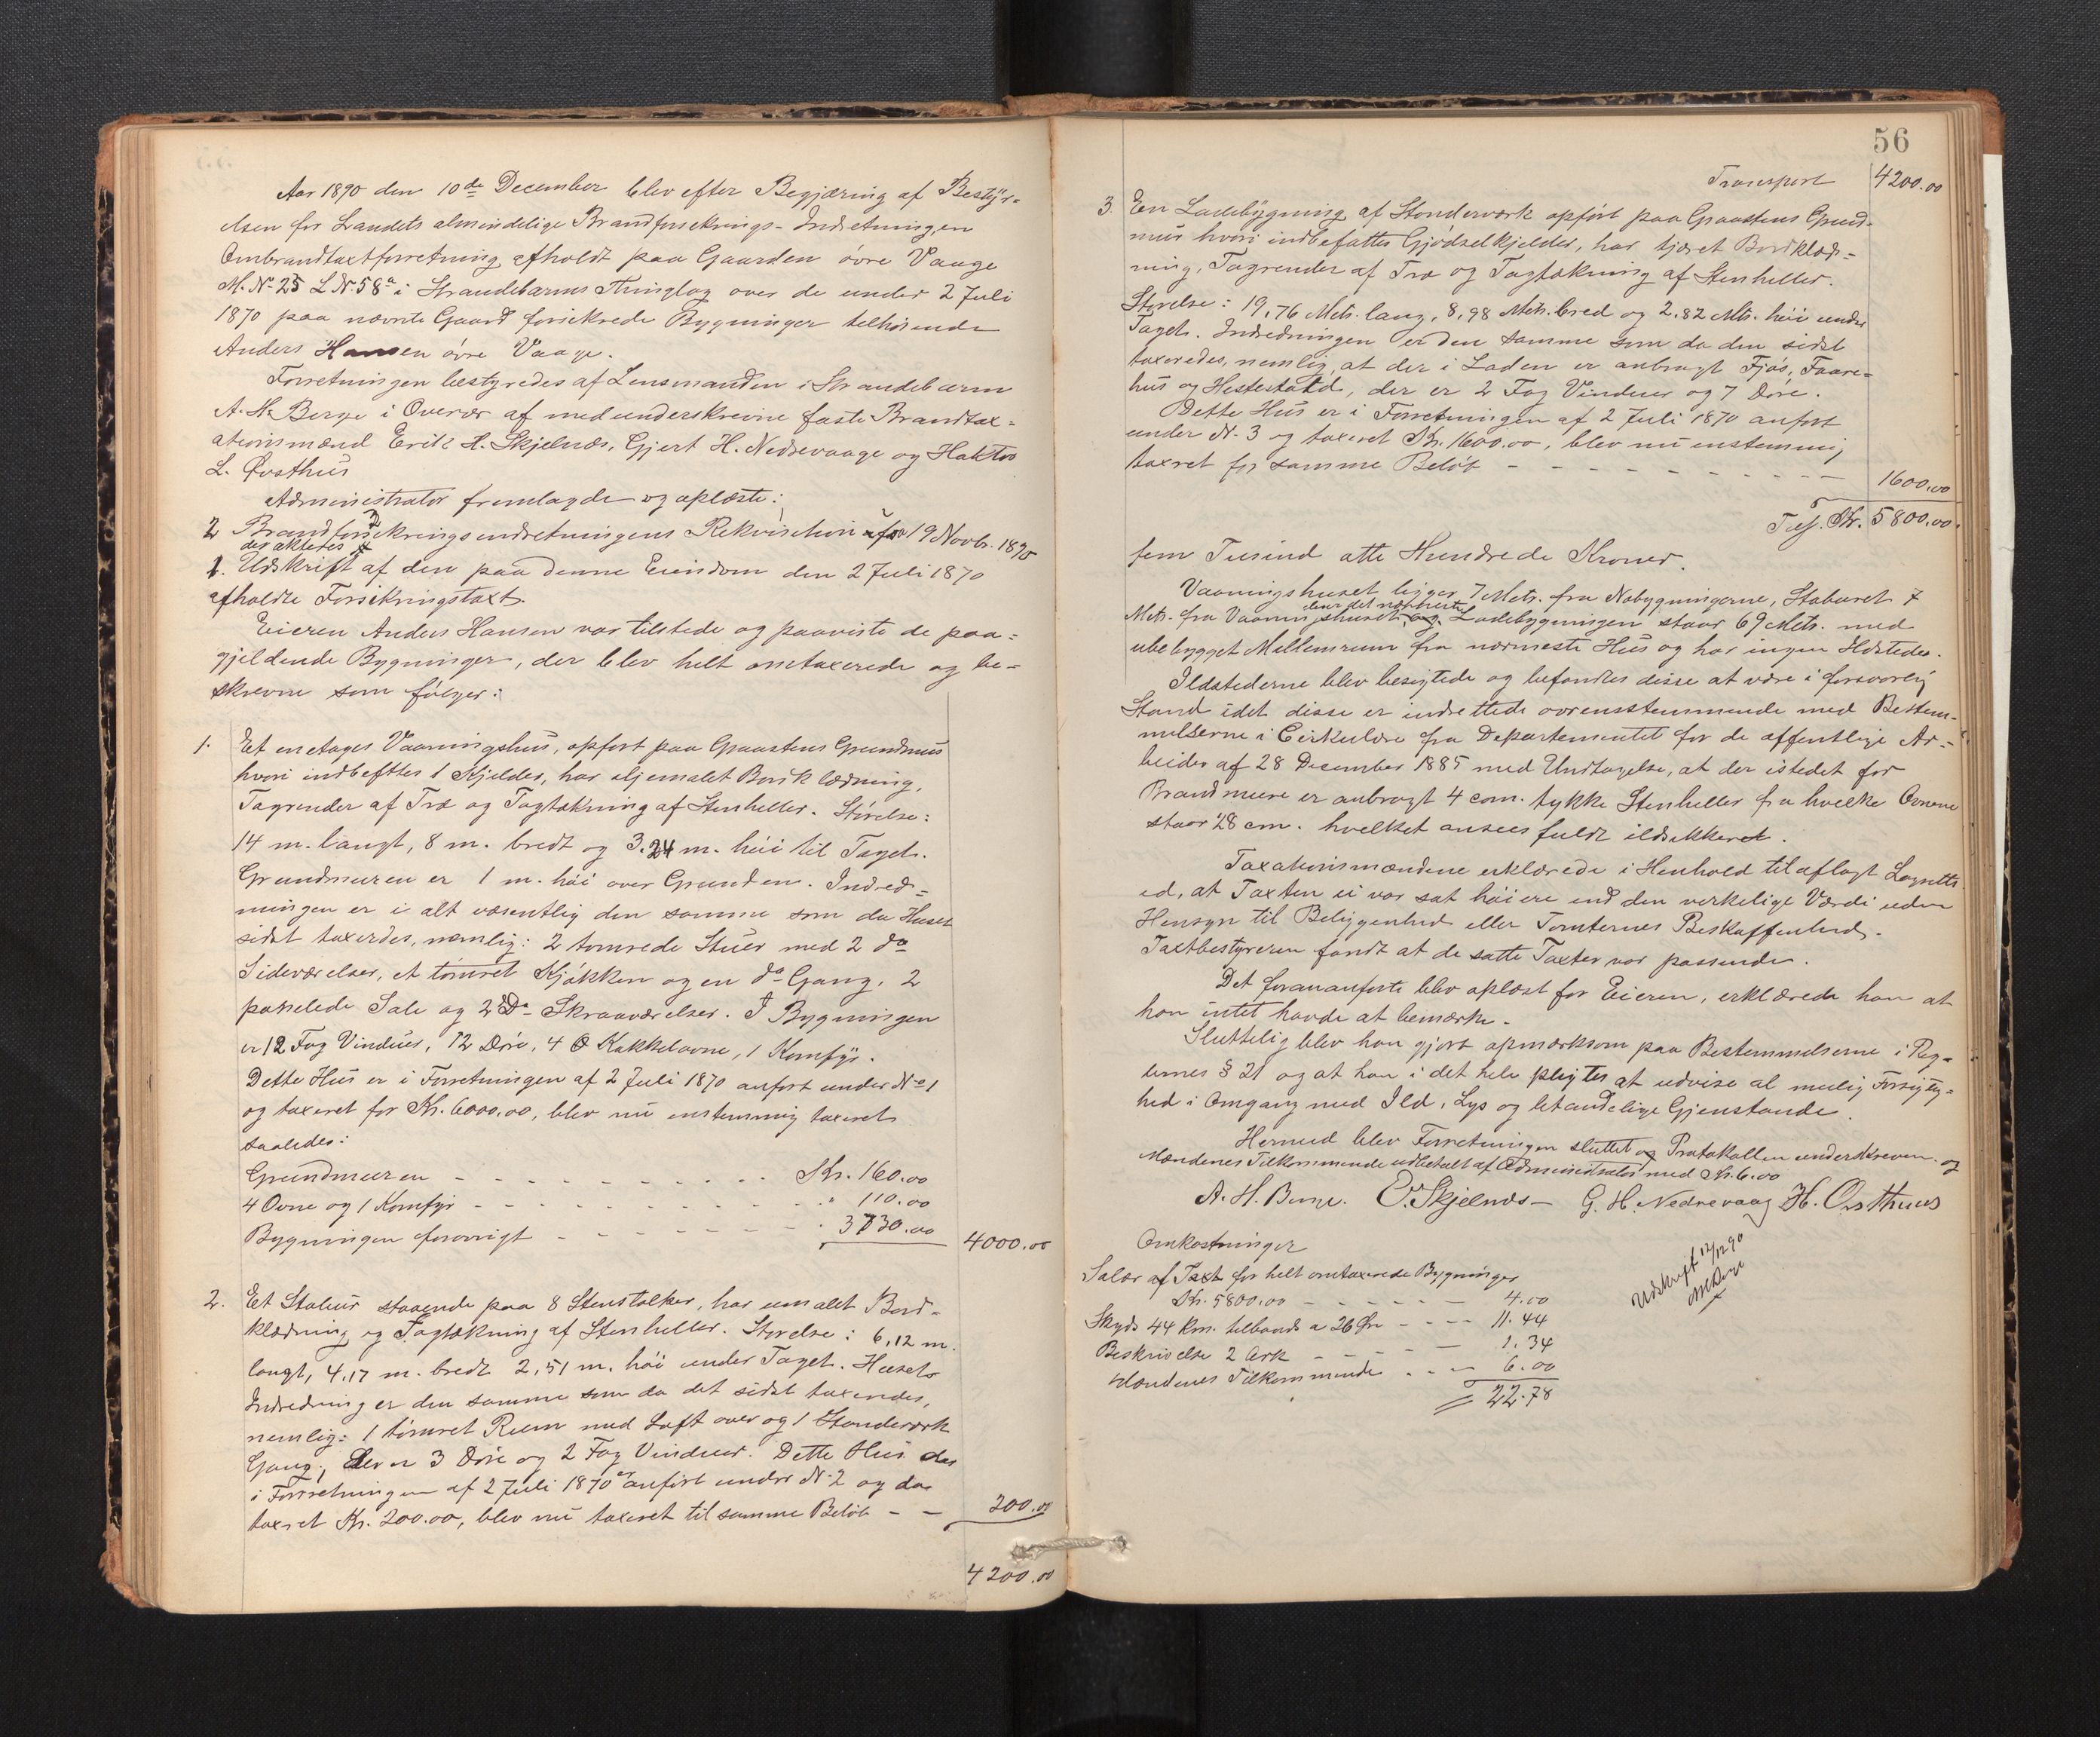 Aar 1890 den 10de December blev efter Begjæring af Bestyr-
elsen for Landets almindelige Brandforsikrings-Indretningen
Ombrandtaxtforretning afholdt paa Gaarden övre Vaage
M. No 25 L No. 58a i Strandebarms Thinglag over de under 2 Juli
1870 paa nævnte Gaard forsikrede Bygninger tilhörende
Anders Hansen övre Vaage.
Forretningen bestyredes af Lensmanden i Strandebarm
A. H. Berge i Overvær af medunderskrevne faste Brandtax-
ationsmænd Erik H. Skjelnæs, Gjert H. Nedrevaage og Haktor
L. Östhus
Administrator fremlagde og oplæste:
2 Brandforsikringsindretningens Rekvisition af 19 Novbr. 1890
der akteres
1. Udskrift af den paa denne Eiendom den 2 Juli 1870
afholdte Forsikringstaxt.
Eieren Anders Hansen var tilstede og paaviste de paa-
gjeldende Bygninger, der blev helt omtaxerede og be-
skrevne som fölger:
1. Et en etages Vaaningshus, opfört paa Graastens Grundmur
hvori indbefattes 1 Kjelder, har oljemalet Bordklædning,
Tagrender af Træ og Tagtækning af Stenheller. Störelse:
14 m. langt, 8 m. bredt og 3.24 m. höi til Taget.
Grundmuren er 1 m. höi over Grunden. Indred-
ningen er i alt væsentlig den samme som da Huset
sidst taxerdes, nemlig: 2 tömrede Stuer med 2 do
Sideværelser, et tömret Kjökken og en do Gang, 2
panelede Sale og 2 Do Skraaværelser. I Bygningen
er 12 Fag Vinduer, 12 Döre, 4 Kakkelovne, 1 Komfyr.
Dette Hus er i Forretningen af 2 Juli 1870 anfört under No 1
og taxeret for Kr. 6000.00, blev nu enstemmig taxeret
saaledes:
Grundmuren - - - - - - - - - - Kr. 160.00
4 Ovne og 1 Komfyr - - - - - - - - - " 110.00
Bygningen forövrigt - - - - - - - - 3730.00 4000.00
2. Et Stabur staaende paa 8 Stenstolker, har umalet Bord-
klædning og Tagtækning af Stenheller. Störelse: 6,12 m.
langt, 4,17 m. bredt 2,51 m. höi under Taget. Husets
Indredning er den samme som da det sidst taxerdes,
nemlig: 1 tömret Rum med Loft over og 1 Stenderværk
Gang, der er 3 Döre og 2 Fag Vinduer. Dette Hus der
i Forretningen af 2 Juli 1870 er anfört under No. 2 og da
taxeret Kr. 200.00, blev nu taxeret til samme Belöb - - 200.00
4200.00
56
Transport 4200.00
3. En Ladebygning af Stenderværk opfört paa Graastens Grund-
mur hvori indbefattes Gjödselkjelder, har tjæret Bordklæd-
ning, Tagrender af Træ og Tagtækning af Stenheller.
Störelse: 19,76 Metr. lang, 8,98 Metr. bred og 2,82 Mtr. höi under
Taget. Indredningen er den samme som da den sidst
taxeredes, nemlig, at der i Laden er anbragt Fjös, Faare-
hus og Hestestald, der er 2 Fag Vinduer og 7 Döre.
Dette Hus er i Forretningen af 2 Juli 1870 anfört
under No. 3 og taxeret Kr. 1600.00, blev nu enstemmig
taxret for samme Belöb - - - - - - - - - - 1600.00
Tils. Kr. 5800.00.
fem Tusind otte Hundrede Kroner.
Vaaningshuset ligger 7 Metr. fra Nabygningerne, Staburet 7
Metr. fra Vaaningshuset, Ladebygningen staar 69 Metr. med
ubebygget Mellemrum fra nærmeste Hus og har ingen Ildsteder.
Ildstederne blev besigtede og befandtes disse at være i forsvarlig
Stand idet disse er indrettede overensstemmende med Bestem-
melserne i Cirkulære fra Departementet for de offentlige Ar-
beider af 28 December 1885 med Undtagelse, at der istedet for
Brandmure er anbragt 4 ctm. tykke Stenheller fra hvilke Ovnene
staar 28 cm. hvilket ansees fuldt ildsikkert.
Taxationsmændene erklærede i Henhold til aflagt Lagretts
ed, at Taxten ei var sat höiere end den verkelige Værdi uden
Hensyn til Beliggenhed eller Tomternes Beskaffenhed.
Taxtbestyreren fandt at de satte Taxter var passende.
Det forananförte blev oplæst for Eieren, erklærede han at
han intet havde at bemærke.
Sluttelig blev han gjort opmærksom paa Bestemmelserne i Reg-
lernes § 21 og at han i det hele pligter at udvise al mulig Forsigtig-
hed i Omgang med Ild, Lys og letændelige Gjenstande.
Hermed blev Forretningen sluttet og Protokollen underskreven og
Mændenes Tilkommende udbetalt af Administrator med Kr. 6.00
A. H. Berge. E. Skjelnæs - G. H. Nedrevaag H. Östhuus
Omkostninger
Salær af Taxt for helt omtaxerede Bygninger
Kr. 5800.00 - - - - - 4.00
Skyds 44 Km. tilbaads a 26 Öre - - - - 11.44
Beskrivelse 2 Ark - - - - - 1.34
Mændenes Tilkommende - - - 6.00
22.78
Udskrift 12/12 90
AHBerge